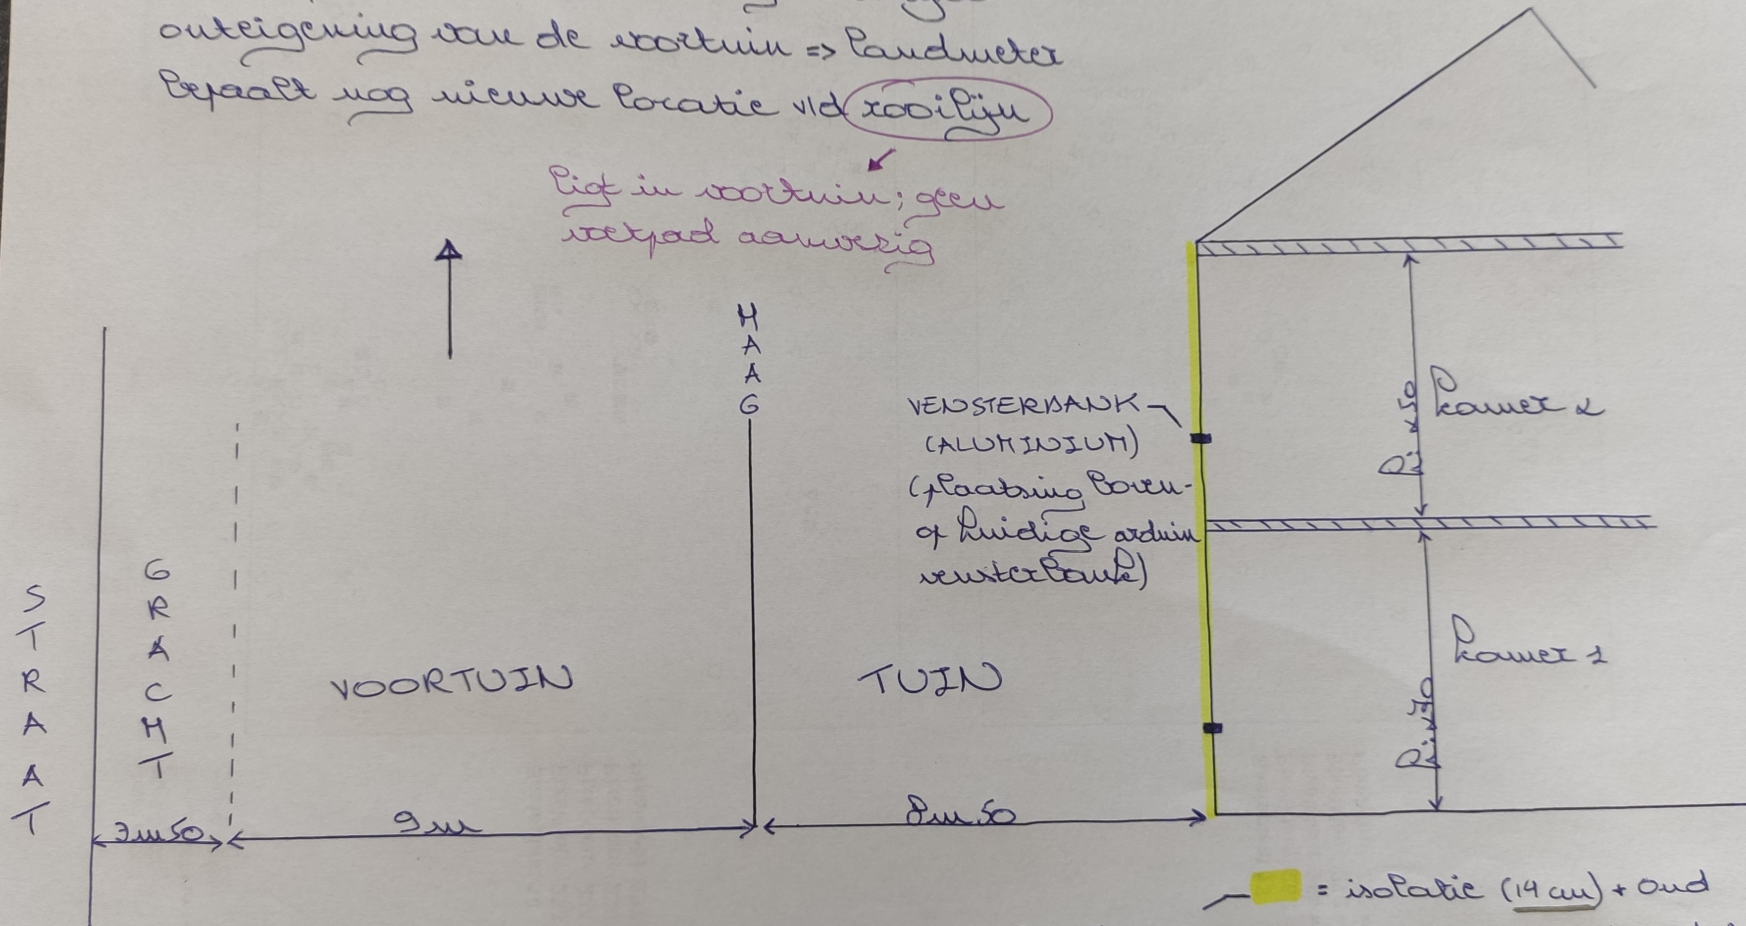 onteigening van de voortuin => landmeter
bepaalt nog nieuwe locatie v/d rooilijn
ligt in voortuin; geen
voetpad aanwezig
HAAG
VENSTERBANK
(ALUMINIUM)
(plaatsing boven-
op huidige arduin
vensterbank)
kamer 2
kamer 1
STRAAT
GRACHT
VOORTUIN
TUIN
9m
8m50
= isolatie (14 cm) + oud